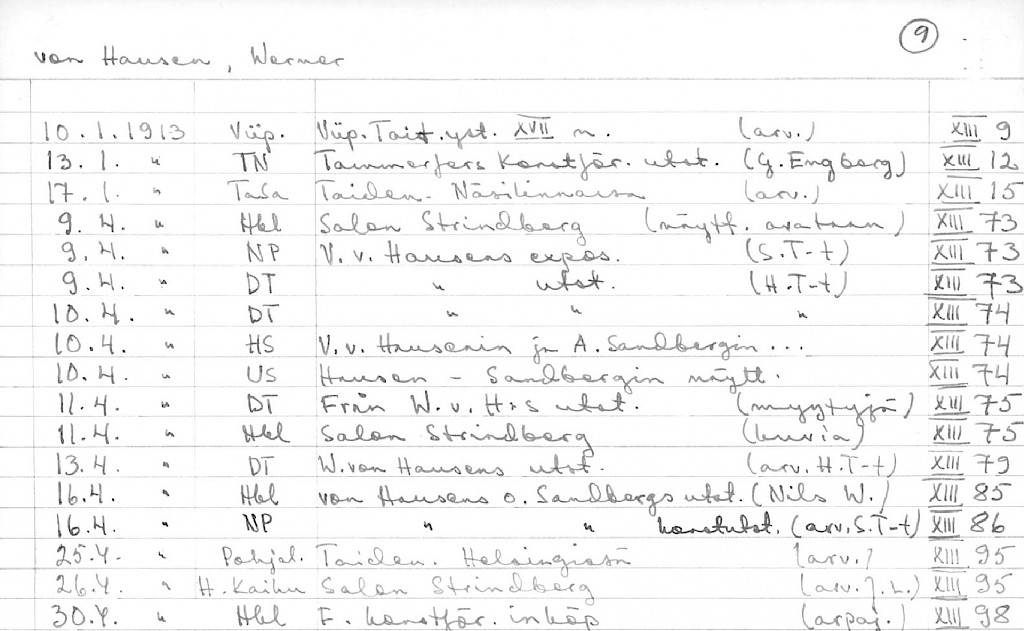 9
von Hausen, Werner
10.1.1913 Viip. Viip.Tait.yst. XVII n. (arv.) XIII 9
13.1. " TN Tammerfors Konstför. utst. (G. Engberg) XIII 12
17.1. " TaSa Taiden. Näsilinnassa (arv.) XIII 15
9.4. " Hbl Salon Strindberg (näytt. avataan) XIII 73
9.4. " NP V.v. Hausens expos. (S.T-t) XIII 73
9.4. " DT " utst. (H.T-t) XIII 73
10.4. " DT " " " XIII 74
10.4. " HS V.v. Hausenin ja A. Sandbergin ... XIII 74
10.4. " US Hausen - Sandbergin näytt. XIII 74
11.4. " DT Från W.v. H:s utst. (myytyjä) XIII 75
11.4. " Hbl Salon Strindberg (kuvia) XIII 75
13.4 " DT W.von Hausens utst. (arv. H.T-t) XIII 79
16.4. " Hbl von Hausens o. Sandbergs utst. (Nils W.) XIII 85
16.4. " NP " " konstutst. (arv. S.T-t) XIII 86
25.4. " Pohjal. Taiden. Helsingissä (arv.) XIII 95
26.4. " H. Kaiku Salon Strindberg (arv. J.L.) XIII 95
30.4. " Hbl F. konstför. inköp (arpaj.) XIII 98